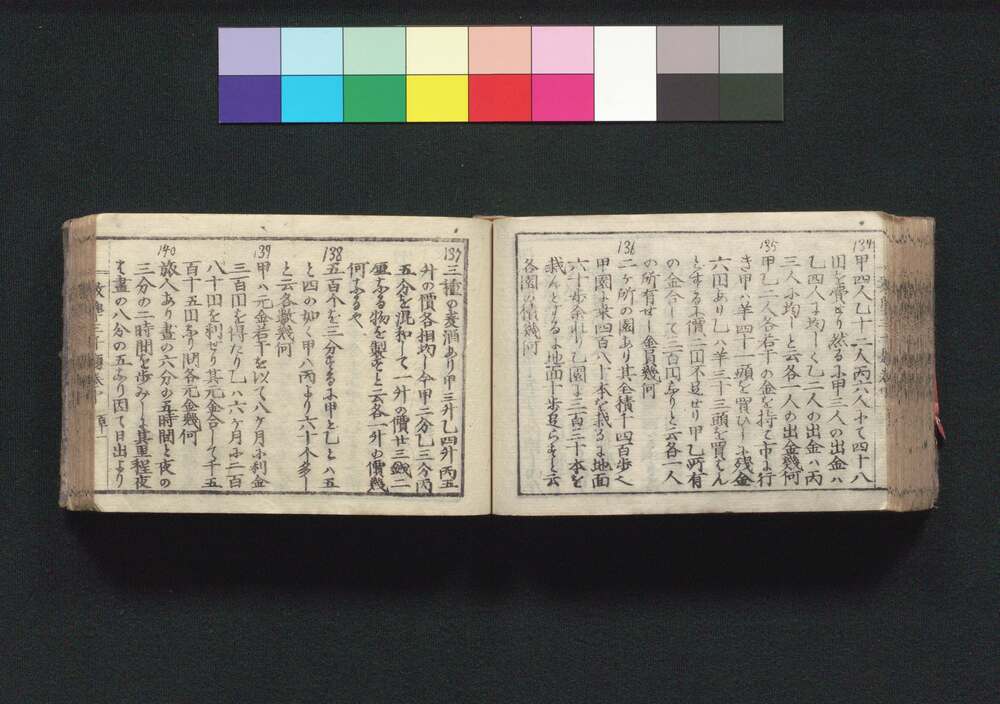 134 甲四人乙十二人丙六人にて四十八
田を費せり然るに甲三人の出金ハ
乙四人に均しく乙二人の出金ハ丙
三人に均しと云各一人の出金幾何
135 甲乙二人各若干の金を持て市に行
き甲ハ羊四十一頭を買ひしに残金
六田あり乙ハ羊三十三頭を買はん
とするに價二田不足せり甲乙所有
の金合して三百四なりと云各一人
の所有せし金員幾何
136 二ヶ所の園あり其全積千四百歩
甲園に菜四百八十本を栽るに地面
六十歩余れり乙園に三百二十本を
栽んとするに地面十歩足らずと云
各園の積幾何
137 三種の麦酒あり甲三升乙四升丙五
升の價各相均し今甲二分乙三分丙
五分を混和して一升の價廿三錢二
なる物を製すと云各一升の價幾
何なるや
138 五百个を三分するに甲と乙とハ五
と四の如く甲ハ丙より六十个多し
と云各數幾何
139 甲ハ元金若干を以て八ヶ月に利金
三百田を得たり乙ハ六ヶ月に二百
八十田を利せり其元金合して千五
百十五田なり問各元金幾何
140 旅人あり晝の六分の五時間と夜の
三分の二時間を歩みし其里程夜
は晝の八分の五なり因て日出より